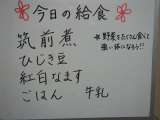 今日の給食
筑前煮
ひじき豆
紅白なます
ごはん 牛乳
※野菜をたくさん食べて
強い体になろう!!